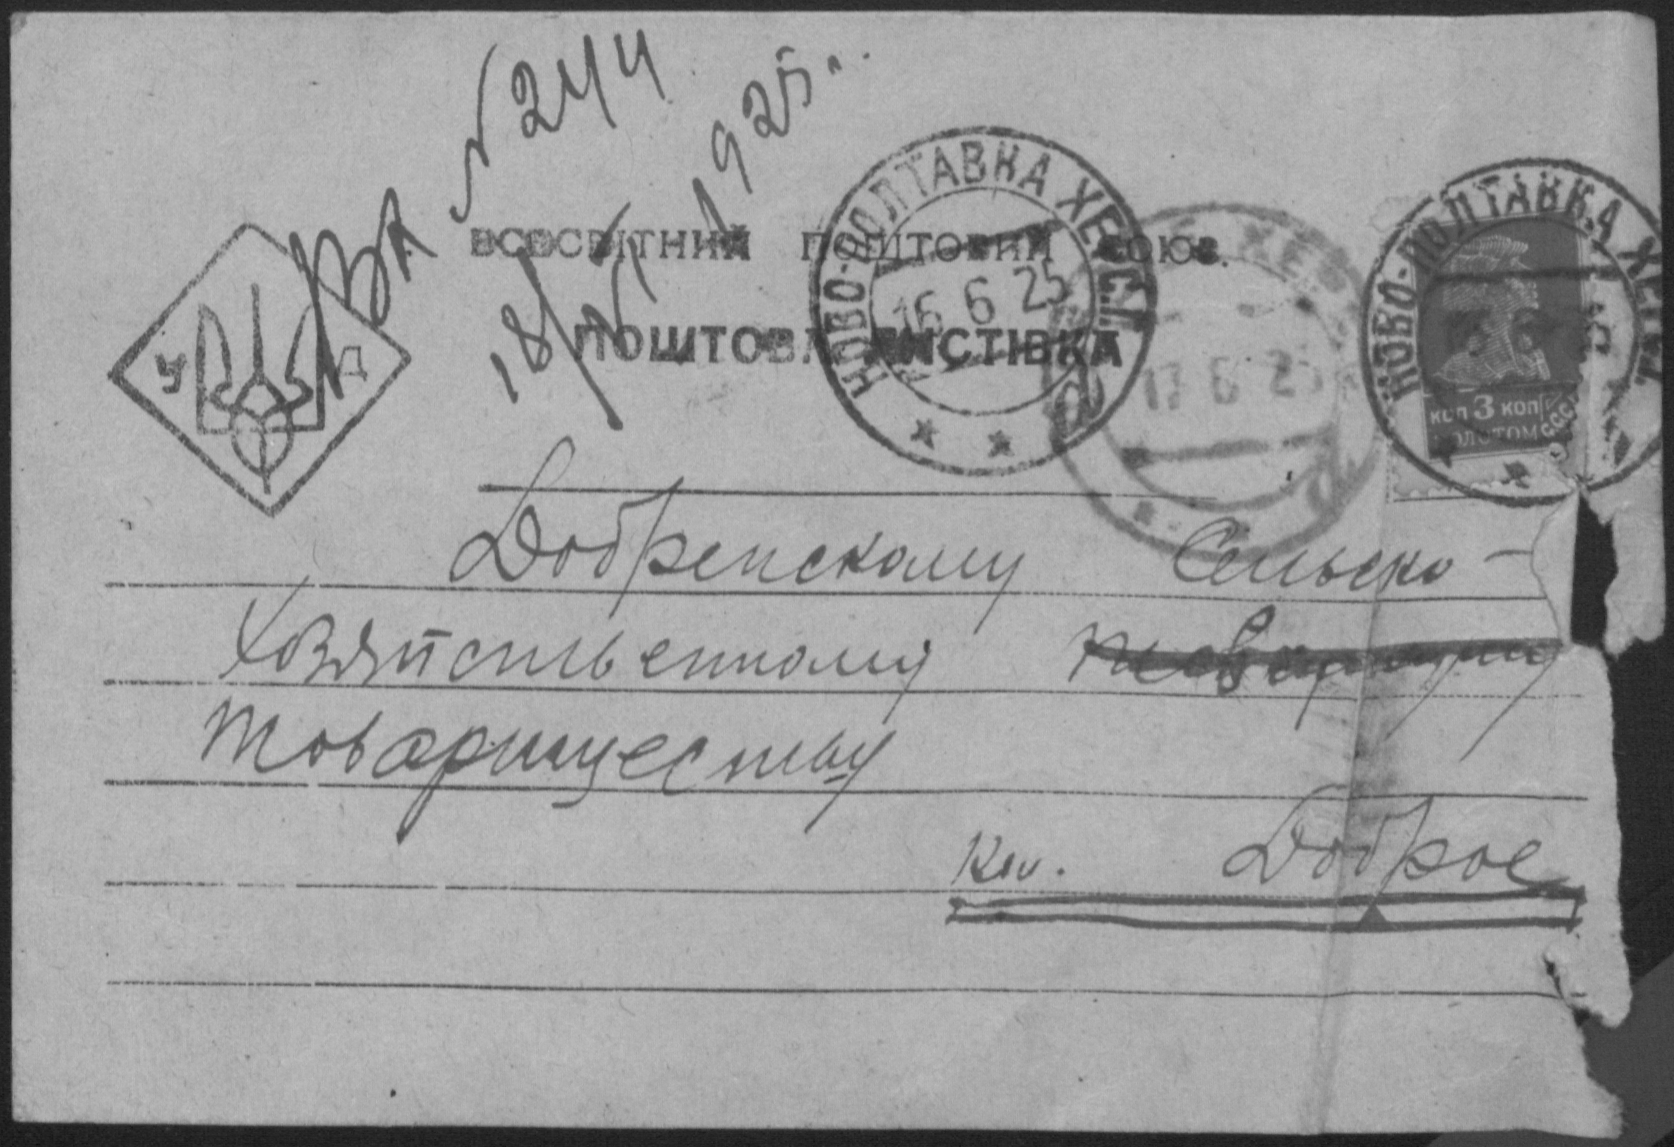 Вх №244
18/VI 1925
ВСЕСВІТНИЙ ПОШТОВИЙ СОЮЗ.
У Д
ПОШТОВА ЛИСТІВКА
НОВО-ПОЛТАВКА ХЕРС.
16 6 25
ХЕР
17 6 25
НОВО-ПОЛТАВКА ХЕРС.
КОП 3 КОП
ЗОЛОТОМ
СССР
Добренскому Сельско-
Хозяйственному
Товариществу
Кол. Доброе